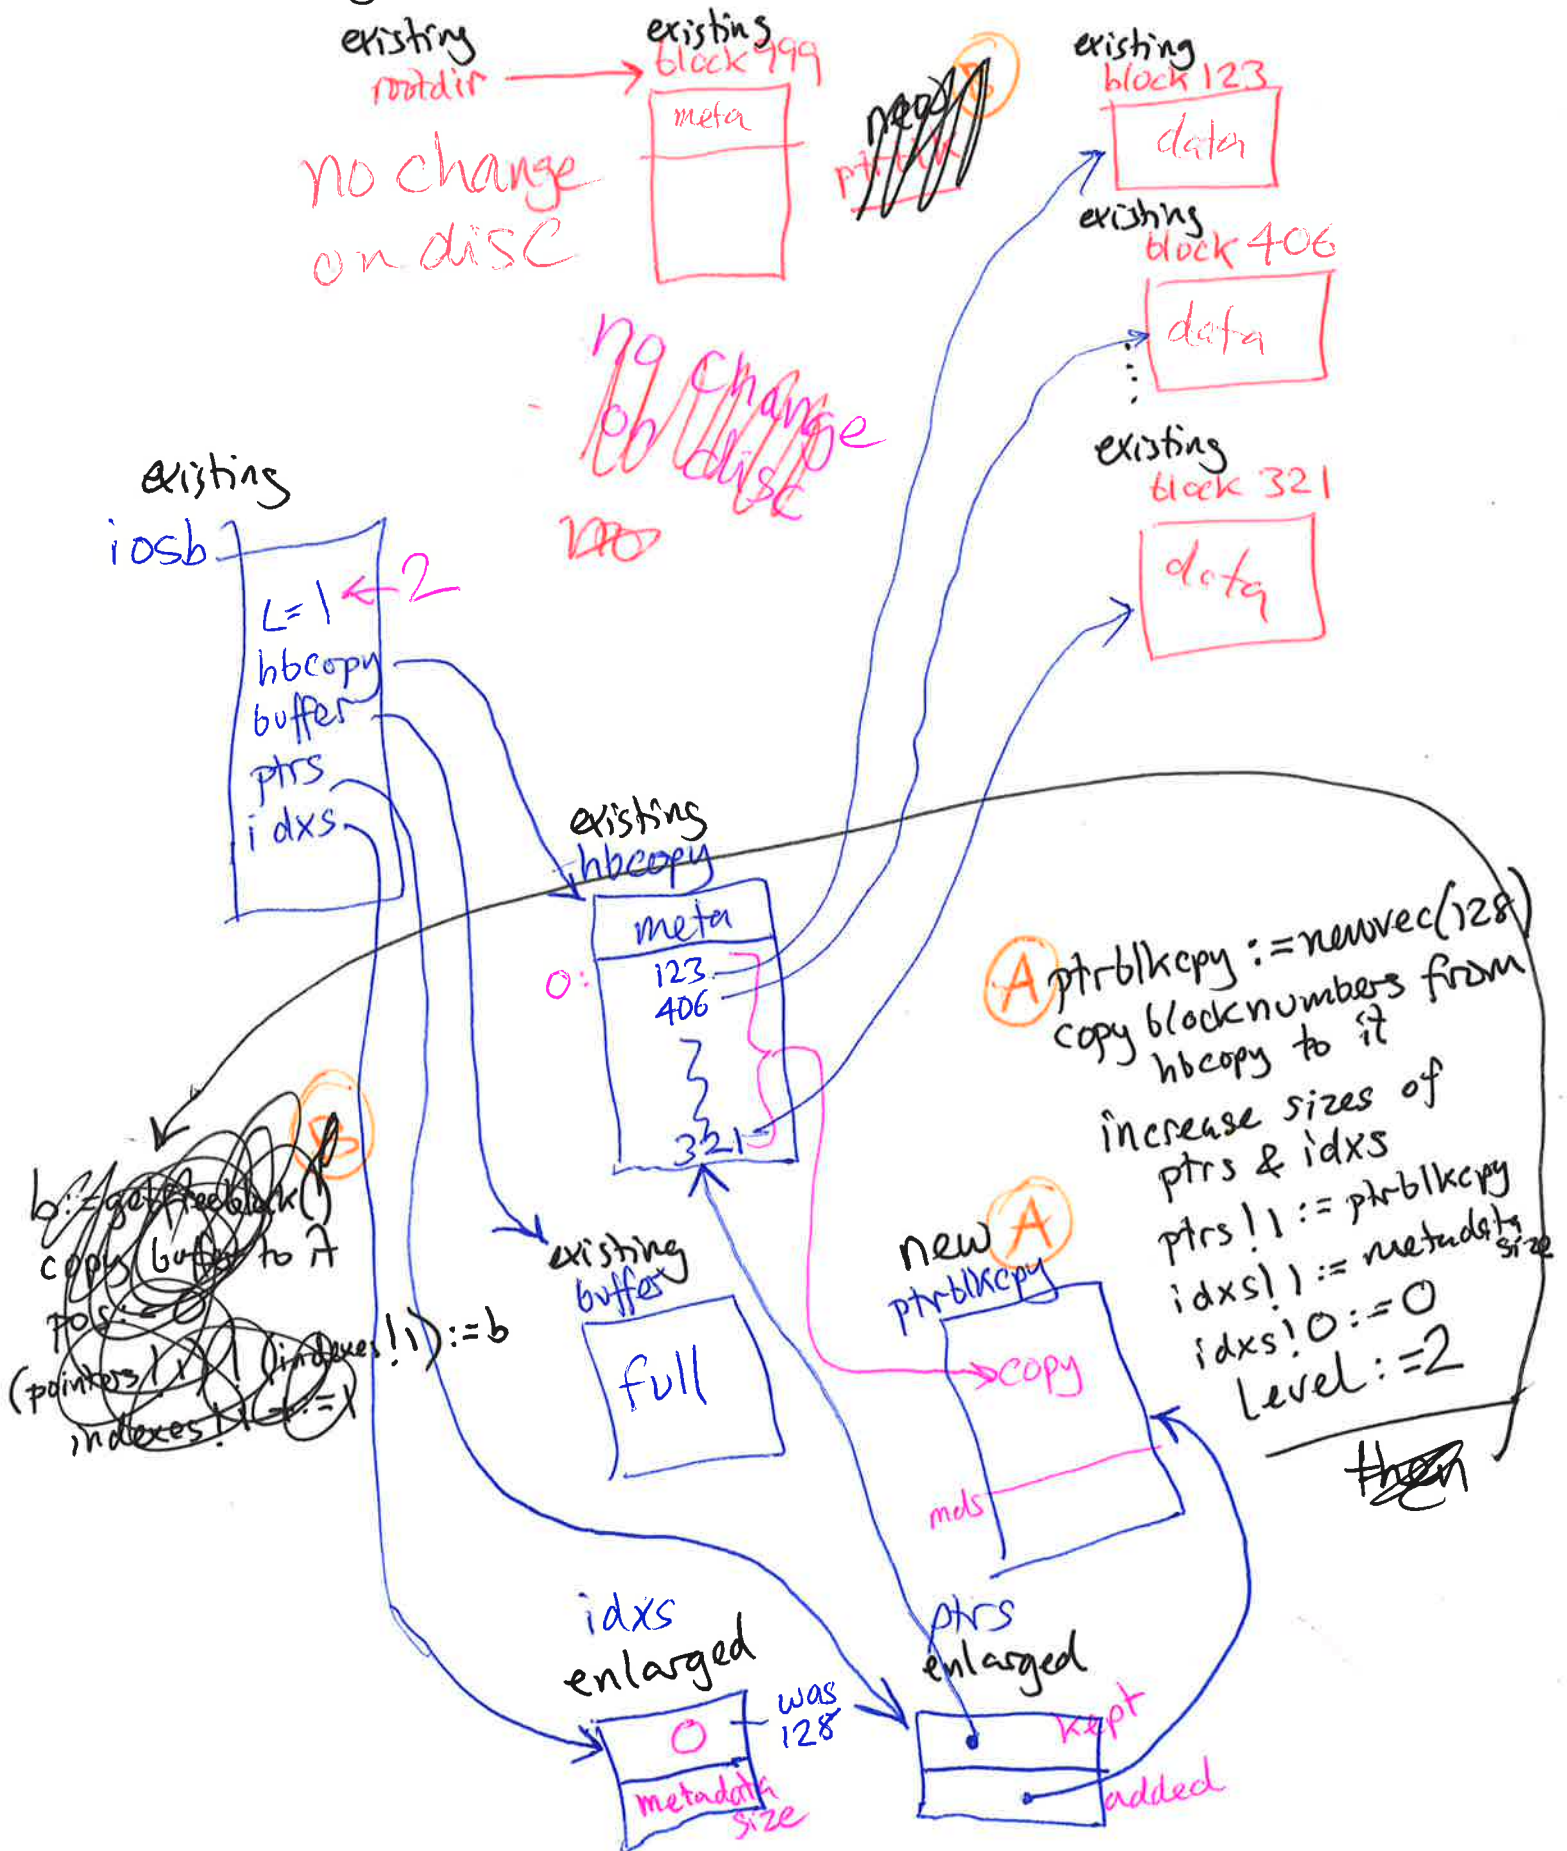 existing
rootdir
existing
block 999
meta
no change
on disc
new
B
existing
block 123
data
existing
block 406
data
existing
block 321
data
no change
on disc
no
existing
iosb
L=1 ← 2
hbcopy
buffer
ptrs
idxs
existing
hbcopy
meta
0:
123
406
321
A ptrblkcpy := newvec(128)
copy blocknumbers from
hbcopy to it
increase sizes of
ptrs & idxs
ptrs!1 := ptrblkcpy
idxs!1 := metadata size
idxs!0 := 0
level := 2
then
B
b := getfreeblock()
copy buffer to it
pos := 0
(pointers!1)!(indexes!1) := b
indexes!1 +:= 1
existing
buffer
full
new A
ptrblkcpy
copy
mds
idxs
enlarged
0
was
128
metadata
size
ptrs
enlarged
kept
added